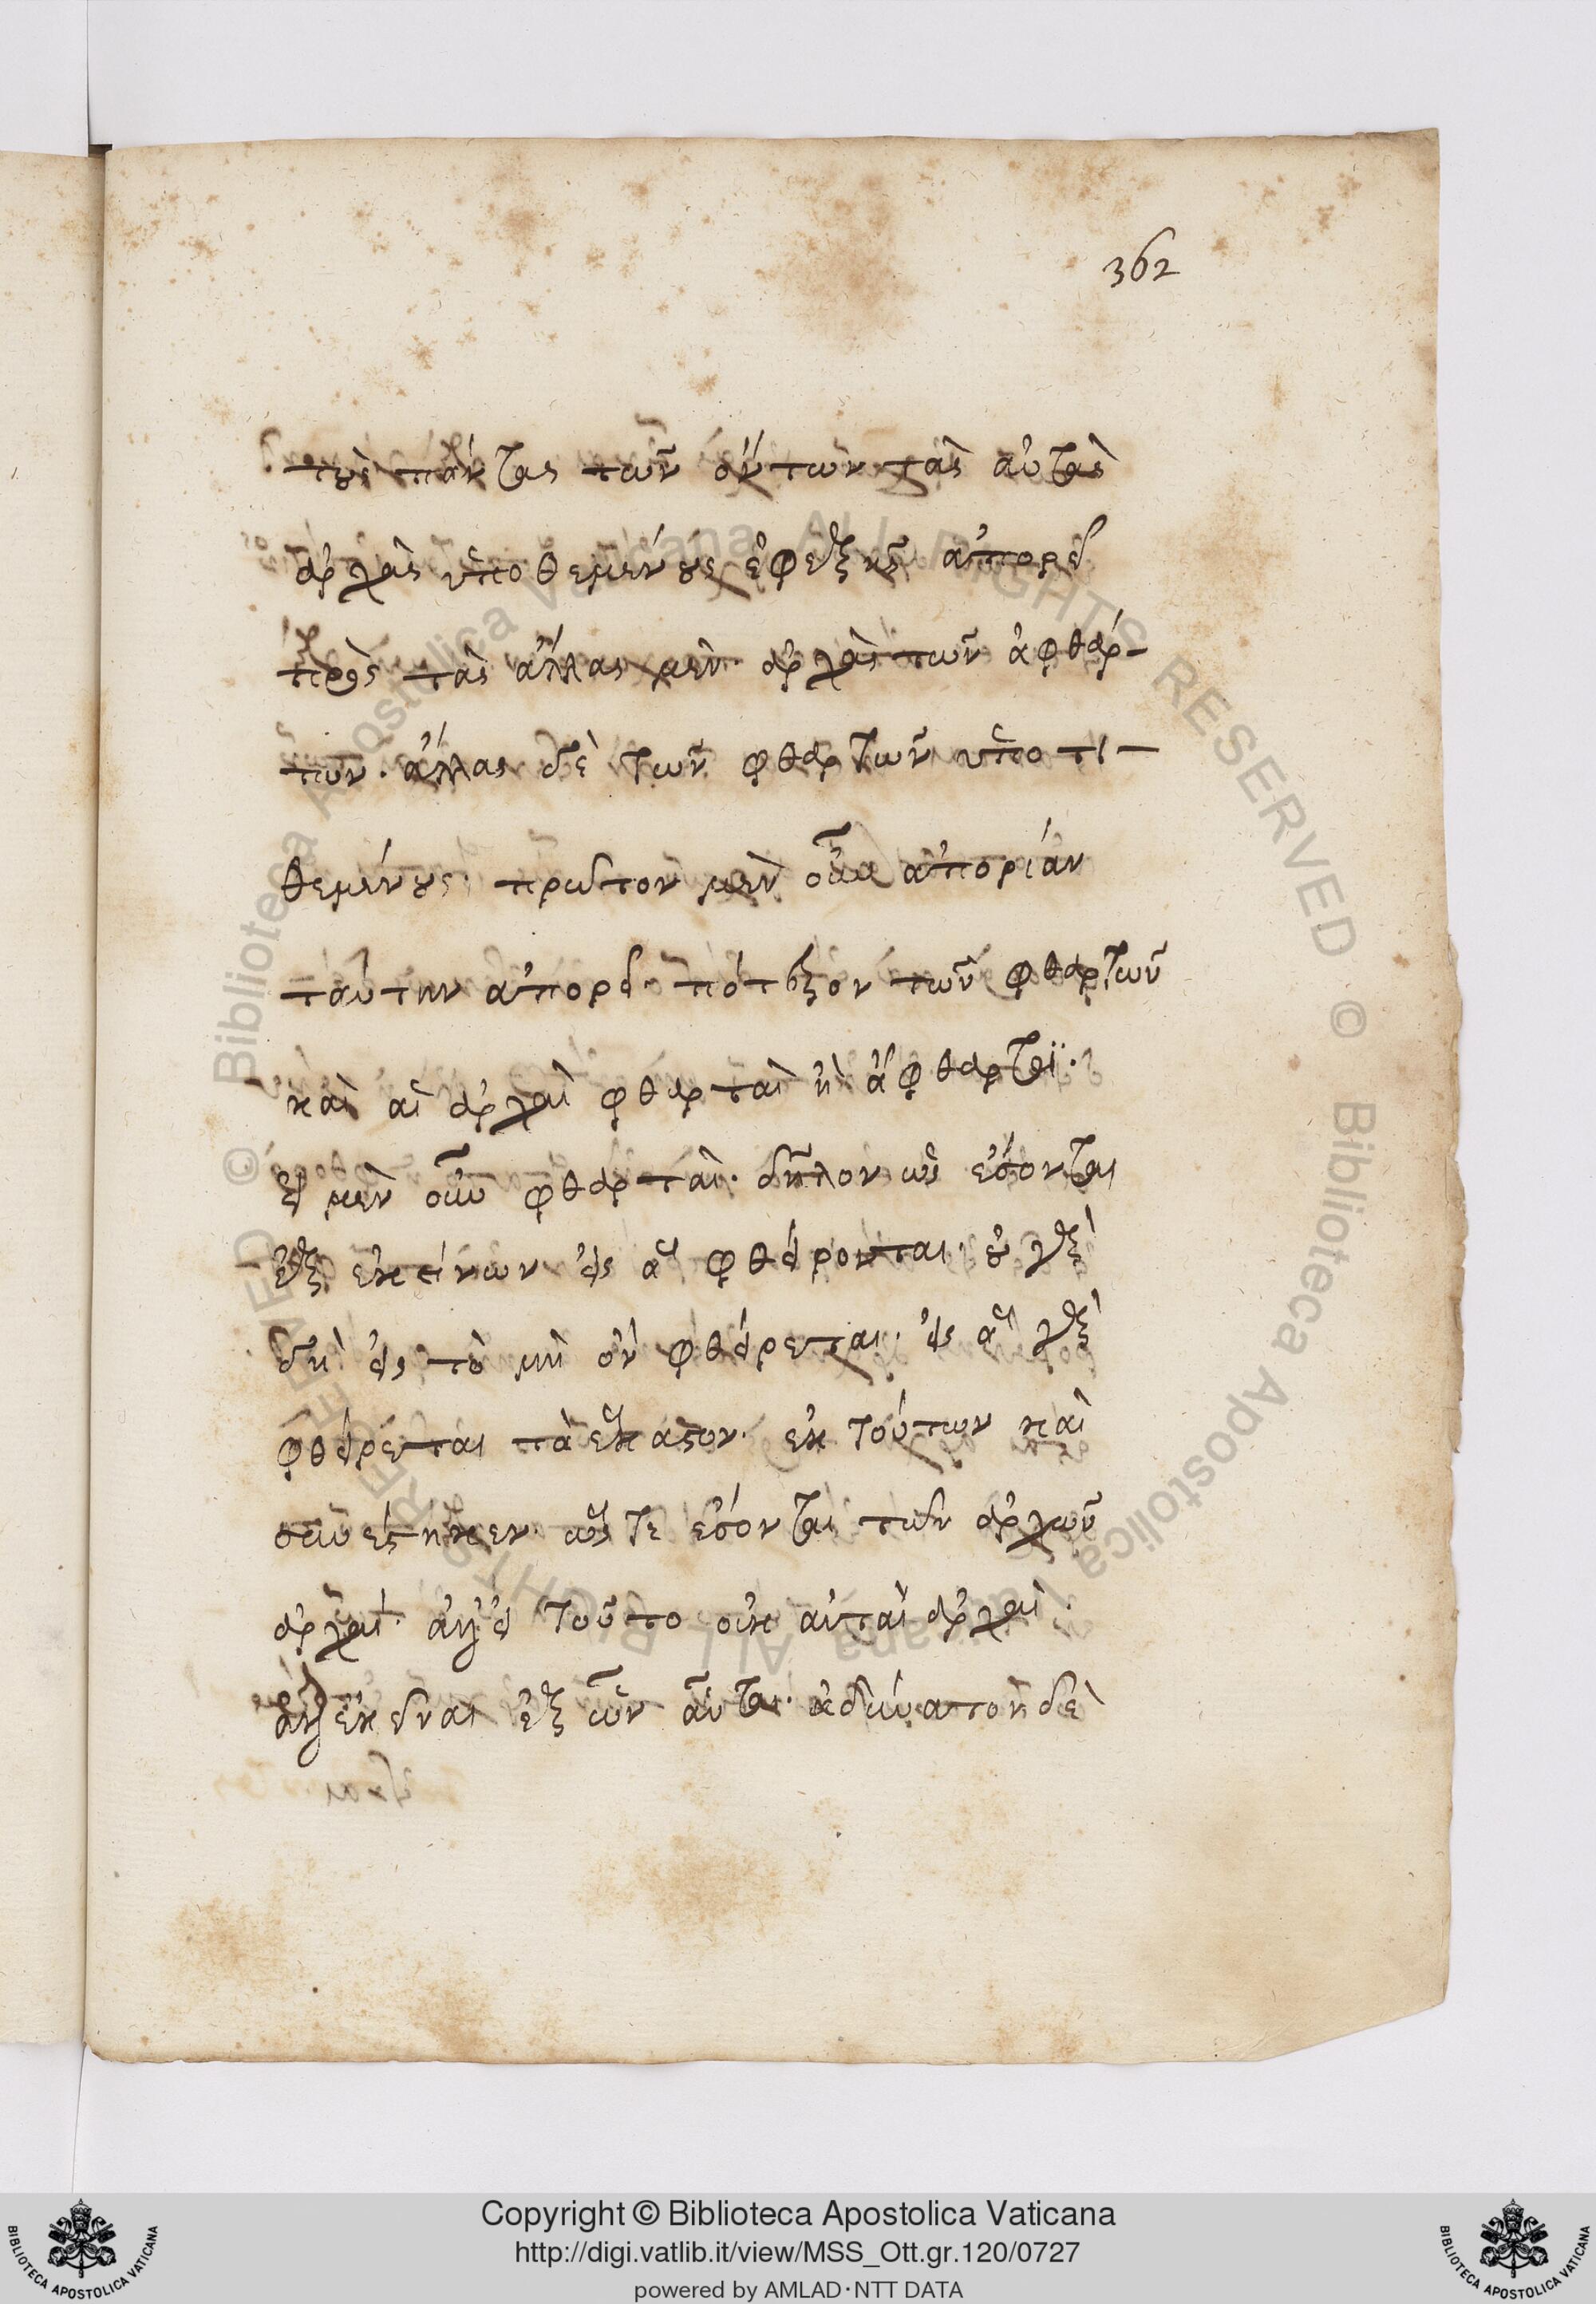 362
τοὺς πάντας τῶν ὄντων τὰς αὐτὰς
ἀρχὰς ὑποθεμένους ἐφεξῆς ἀπορεῖ
πρὸς τὰς ἄλλας μὲν ἀρχὰς τῶν ἀφθάρ-
των· ἄλλας δὲ τῶν φθαρτῶν ὑποτι-
θεμένους· πρῶτον μὲν οὖν ἀπορίαν
ταύτην ἀπορεῖ· πότερον τῶν φθαρτῶν
καὶ αἱ ἀρχαὶ φθαρταὶ ἢ ἄφθαρτοϊ·
εἰ μὲν οὖν φθαρταὶ· δῆλον ὡς ἔσονται
ἐξ ἐκείνων εἰς ἃ φθείρονται· οὐ γὰρ
δὴ εἰς τὸ μὴ ὂν φθείρεται· εἰς ἃ γὰρ
φθείρεται τὰ ἕκαστον· ἐκ τούτων καὶ
συνέστηκεν· ὥστε ἔσονται τῶν ἀρχῶν
ἀρχαί· ἀλλ' εἰ τοῦτο οὐκ αὐταὶ ἀρχαὶ·
ἀλλ' ἐκεῖναι ἐξ ὧν αὗται· ἀδύνατον δὲ
Copyright © Biblioteca Apostolica Vaticana
http://digi.vatlib.it/view/MSS_Ott.gr.120/0727
powered by AMLAD·NTT DATA
BIBLIOTECA APOSTOLICA VATICANA
BIBLIOTECA APOSTOLICA VATICANA
© Biblioteca Apostolica Vaticana ALL RIGHTS RESERVED
© Biblioteca Apostolica Vaticana ALL RIGHTS RESERVED